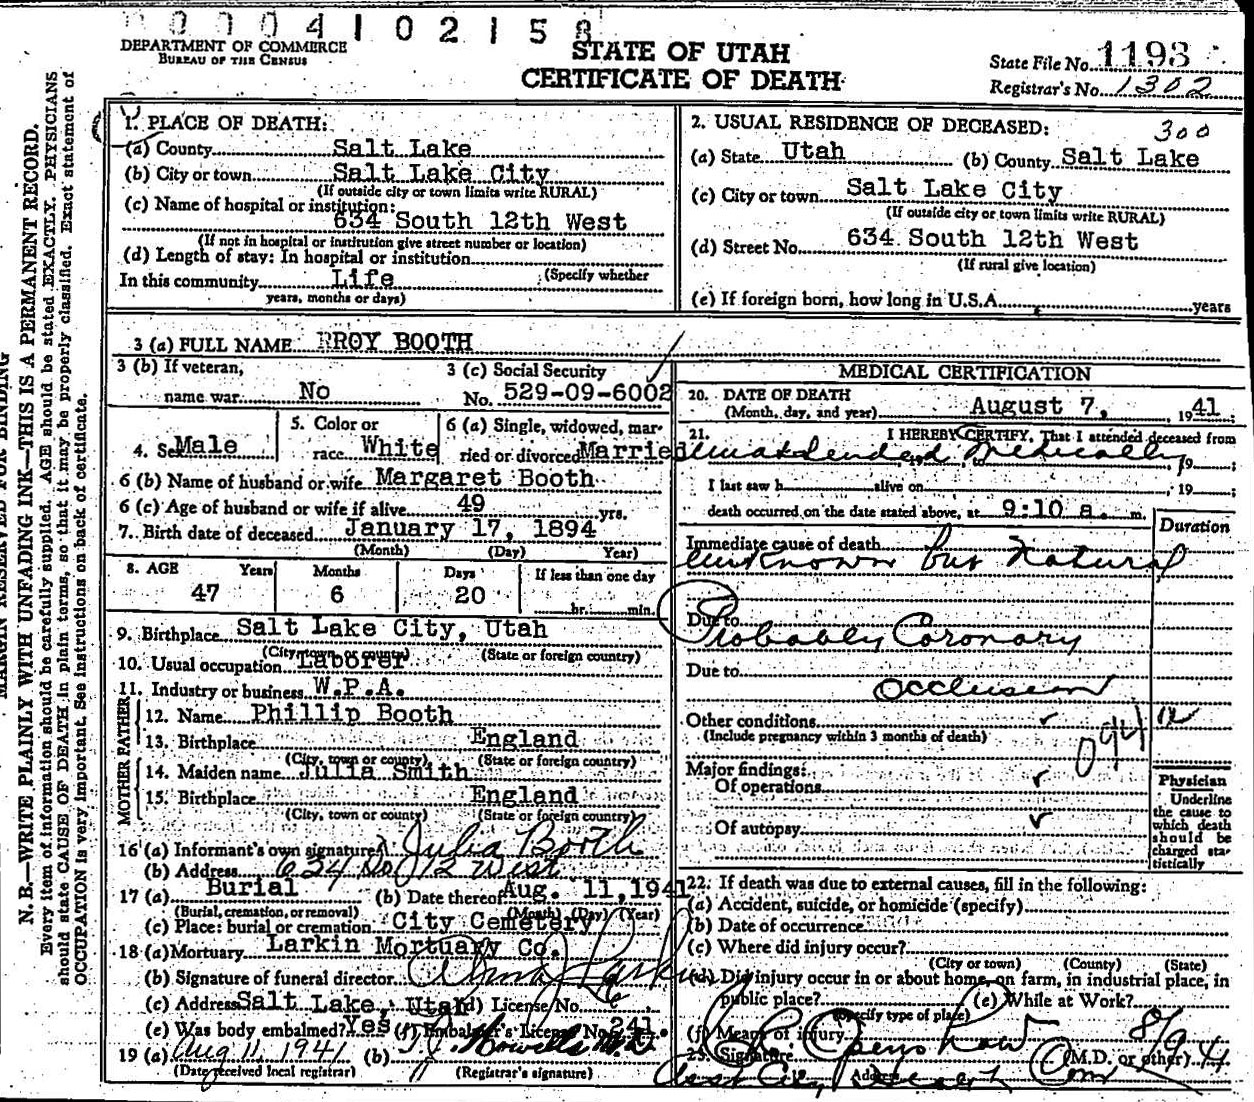 0004102158
DEPARTMENT OF COMMERCE
BUREAU OF THE CENSUS
STATE OF UTAH
CERTIFICATE OF DEATH
State File No. 1193
Registrar's No. 1302
MARGIN RESERVED FOR BINDING
N. B.—WRITE PLAINLY WITH UNFADING INK—THIS IS A PERMANENT RECORD.
Every item of information should be carefully supplied. AGE should be stated EXACTLY. PHYSICIANS
should state CAUSE OF DEATH in plain terms, so that it may be properly classified. Exact statement of
OCCUPATION is very important. See instructions on back of certificate.
1. PLACE OF DEATH:
(a) County Salt Lake
(b) City or town Salt Lake City
(If outside city or town limits write RURAL)
(c) Name of hospital or institution:
634 South 12th West
(If not in hospital or institution give street number or location)
(d) Length of stay: In hospital or institution
(Specify whether
In this community Life
years, months or days)
2. USUAL RESIDENCE OF DECEASED: 300
(a) State Utah (b) County Salt Lake
(c) City or town Salt Lake City
(If outside city or town limits write RURAL)
(d) Street No. 634 South 12th West
(If rural give location)
(e) If foreign born, how long in U.S.A. years
3 (a) FULL NAME RROY BOOTH
3 (b) If veteran,
name war No
3 (c) Social Security
No. 529-09-6002
4. Sex Male
5. Color or
race White
6 (a) Single, widowed, mar-
ried or divorced Married
6 (b) Name of husband or wife Margaret Booth
6 (c) Age of husband or wife if alive 49 yrs.
7. Birth date of deceased January 17, 1894
(Month) (Day) Year)
8. AGE Years Months Days If less than one day
47 6 20 hr. min.
9. Birthplace Salt Lake City, Utah
(City, town, or county) (State or foreign country)
10. Usual occupation Laborer
11. Industry or business W.P.A.
FATHER
12. Name Phillip Booth
13. Birthplace England
(City, town or county) (State or foreign country)
MOTHER
14. Maiden name Julia Smith
15. Birthplace England
(City, town or county) (State or foreign country)
16 (a) Informant's own signature Julia Booth
(b) Address 634 So 12 West
17 (a) Burial (b) Date thereof Aug. 11,1941
(Burial, cremation, or removal) (Month) (Day) (Year)
(c) Place: burial or cremation City Cemetery
18 (a) Mortuary Larkin Mortuary Co.
(b) Signature of funeral director
(c) Address Salt Lake, Utah (d) License No.
(e) Was body embalmed? Yes (f) Embalmer's License No. 241
19 (a) Aug 11, 1941 (b) Howells M.D.
(Date received local registrar) (Registrar's signature)
MEDICAL CERTIFICATION
20. DATE OF DEATH
(Month, day, and year) August 7, 1941
21. I HEREBY CERTIFY, That I attended deceased from
unattended medically, 19 ;
I last saw h alive on , 19 ;
death occurred on the date stated above, at 9:10 a. m.
Duration
Immediate cause of death
unknown but Natural
Due to
Probably Coronary
Due to
Occlusion
Other conditions
(Include pregnancy within 3 months of death)
094
Major findings:
Of operations
Of autopsy
Physician
Underline
the cause to
which death
should be
charged sta-
tistically
22. If death was due to external causes, fill in the following:
(a) Accident, suicide, or homicide (specify)
(b) Date of occurrence
(c) Where did injury occur?
(City or town) (County) (State)
(d) Did injury occur in or about home, on farm, in industrial place, in
public place? (e) While at Work?
(Specify type of place)
(f) Means of injury
23. Signature (M.D. or other)
Address